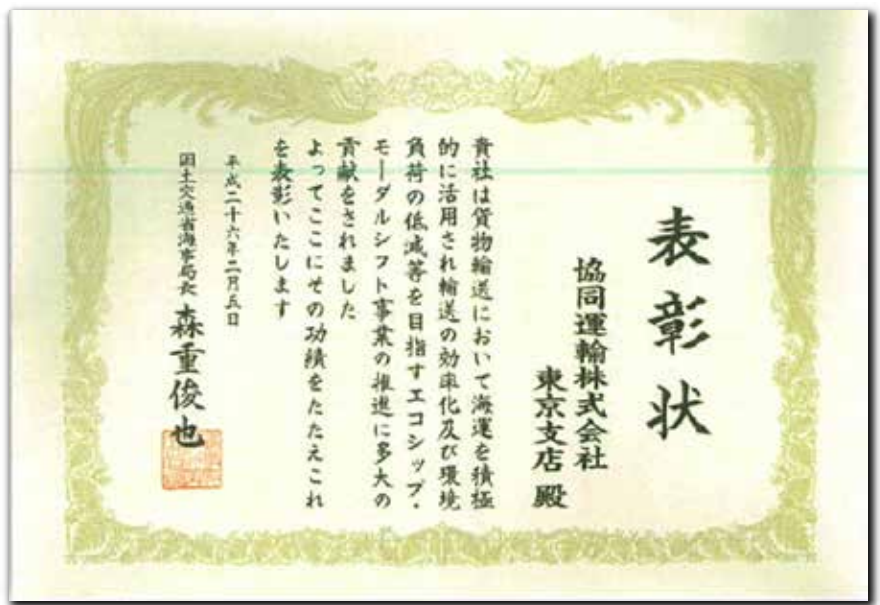 表彰状
協同運輸株式会社
東京支店 殿
貴社は貨物輸送において海運を積極
的に活用され輸送の効率化及び環境
負荷の低減等を目指すエコシップ・
モーダルシフト事業の推進に多大の
貢献をされました
よってここにその功績をたたえこれ
を表彰いたします
平成二十六年二月五日
国土交通省海事局長 森重俊也